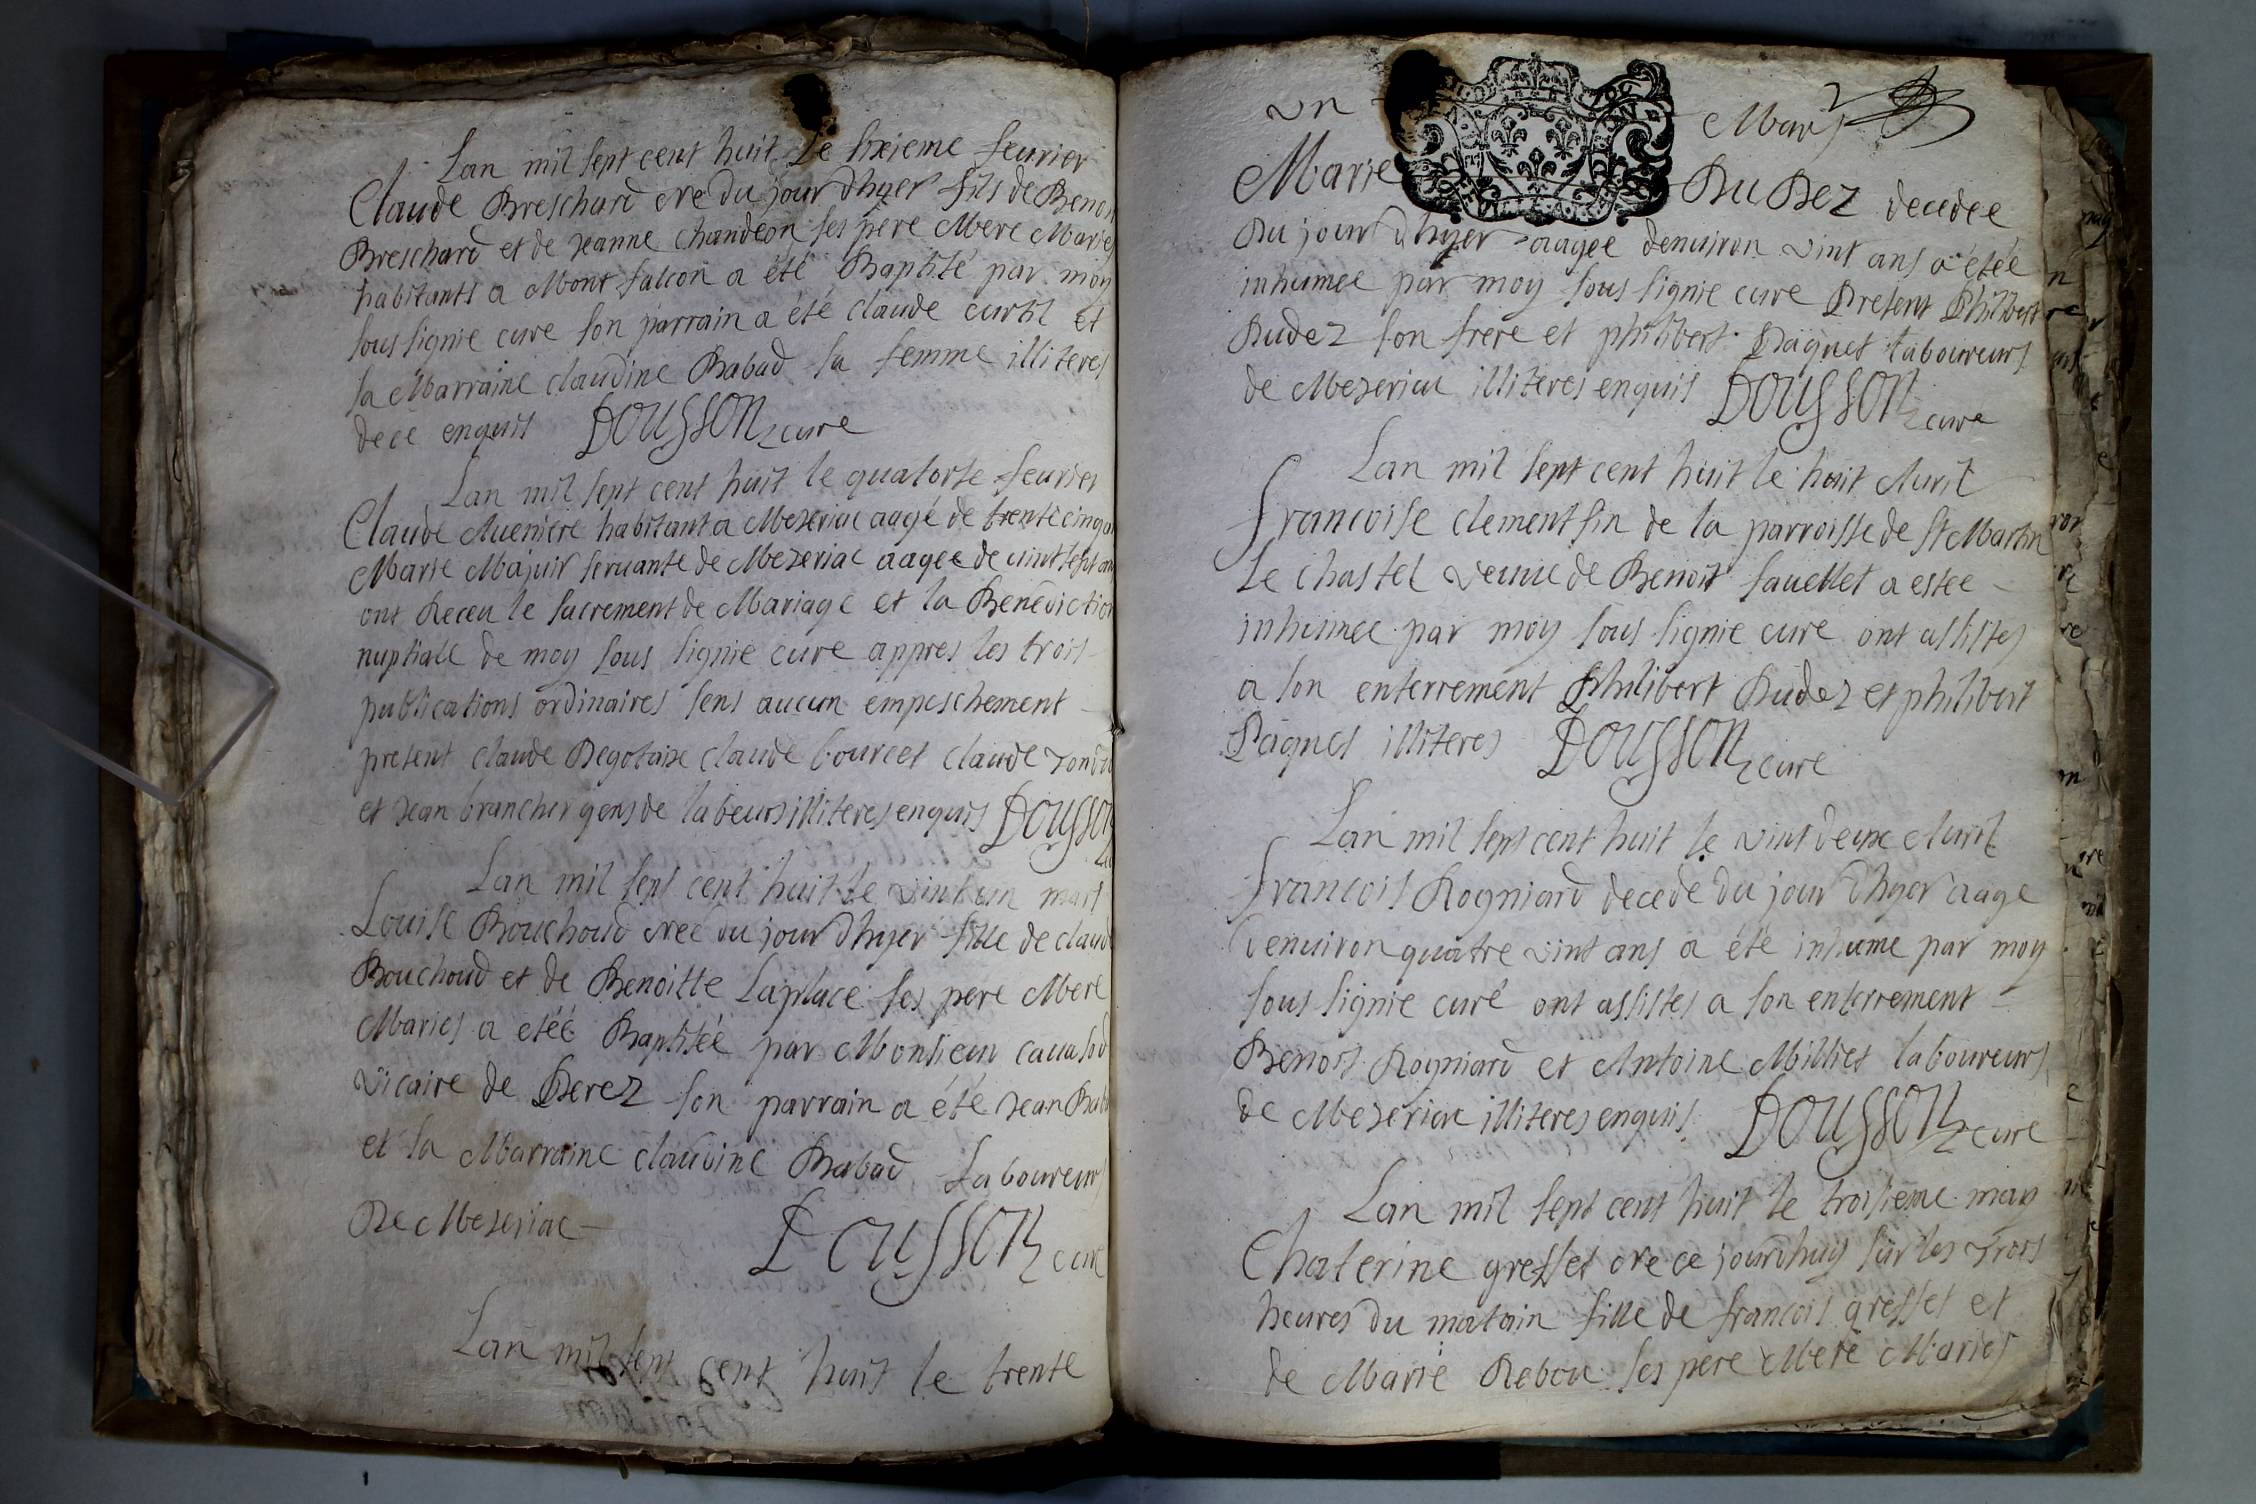 Lan mil sept cent huit Le sixieme feurier
Claude Breschard né du jour dhyer fils de Benoi
Breschard et de Jeanne chandeon ses pere Mere Maries
habitants a Mont falcon a été Baptisé par moy
sous signie cure son parrain a été claude curtil et
sa Marraine claudine Rabad sa femme illiteres
de ce enquis DOUSSON cure
Lan mil sept cent huit le quatorse feurier
Claude Aueniere habitant a Mezeriac aagé de trente cinq an
Marie Majuir seruante de Mezeriac aagee de vint sept an
ont Receu le sacrement de Mariage et la Benediction
nuptiale de moy sous signie cure appres les trois
publications ordinaires sens aucun empeschement
present claude Degotaix claude bourcet claude
et Jean brancher gens de labeurs illiteres enquis DOUSSON
Lan mil sept cent huit le vint un mars
Louise Bouchoud née du jour dhyer fille de claude
Bouchoud et de Benoitte Laplace ses pere Mere
Maries a etéé Baptiséé par Monsieur
vicaire de Perez son parrain a été Jean
et la Marraine claudine Rabad Laboureurs
De Mezeriac
DOUSSON cure
Lan mil sept cent huit le trente
vn Mars
Marie DuDez decedee
du jour dhyer aagee denuiron vint ans a étéé
inhumee par moy sous signie cure Present Philibert
Dudez son frere et philibert Paquet laboureurs
de Mezeriac illiteres enquis DOUSSON cure
Lan mil sept cent huit le huit Auril
francoise clement fin de la parroisse de st Martin
Le chastel veuue de Benoit fauellet a estee
inhumee par moy sous signie curé ont assistes
a son enterrement Philibert Dudez et philibert
Paques illiteres DOUSSON cure
Lan mil sept cent huit le vint deux Auril
francois Rogniard decede du jour dhyer aage
denuiron quatre vint ans a été inhume par moy
sous signie curé ont assistes a son enterrement
Benoit Rogniard et Antoine Milliet laboureurs
de Mezeriac illiteres enquis DOUSSON cure
Lan mil sept cent huit le troisieme may
Chaterine gresset née ce jourdhuy sur les trois
heures du matain fille de francois gresset et
de Marie Rebou ses pere Mere Maries